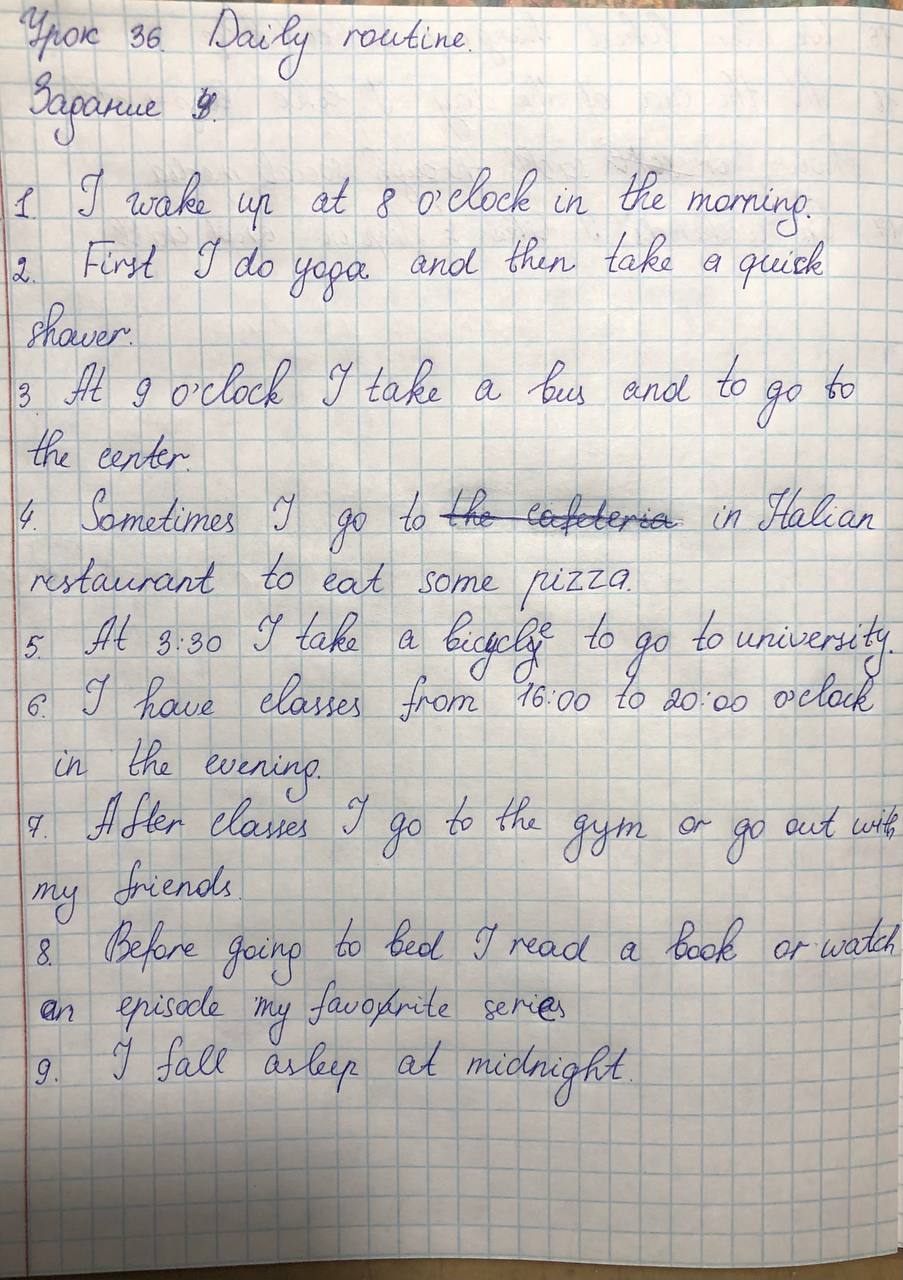 Урок 36. Daily routine.
Задание 9.
1. I wake up at 8 o'clock in the morning.
2. First I do yoga and then take a quick
shower.
3 At 9 o'clock I take a bus and to go to
the center.
4. Sometimes I go to the cafeteria in Italian
restaurant to eat some pizza.
5. At 3:30 I take a bicycle to go to university.
6. I have classes from 16:00 to 20:00 o'clock
in the evening.
7. After classes I go to the gym or go out with
my friends.
8. Before going to bed I read a book or watch
an episode my favorite series
9. I fall asleep at midnight.